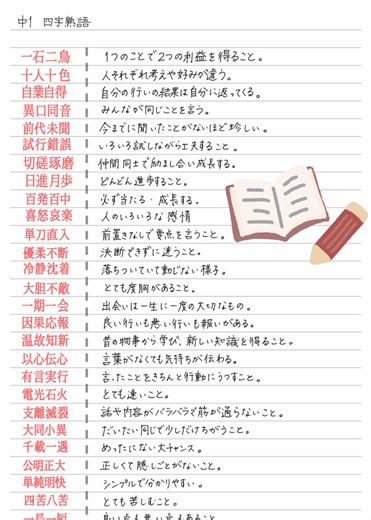 中1 四字熟語
一石二鳥 1つのことで2つの利益を得ること。
十人十色 人それぞれ考えや好みが違う。
自業自得 自分の行いの結果は自分に返ってくる。
異口同音 みんなが同じことを言う。
前代未聞 今までに聞いたことがないほど珍しい。
試行錯誤 いろいろ試しながら工夫すること。
切磋琢磨 仲間同士で励まし合い成長する。
日進月歩 どんどん進歩すること。
百発百中 必ず当たる・成長する。
喜怒哀楽 人のいろいろな感情
単刀直入 前置きなしで要点を言うこと。
優柔不断 決断できずに迷うこと。
冷静沈着 落ちついていて動じない様子。
大胆不敵 とても度胸があること。
一期一会 出会いは一生に一度の大切なもの。
因果応報 良い行いも悪い行いも報いがある。
温故知新 昔の物事から学び、新しい知識を得ること。
以心伝心 言葉がなくても気持ちが伝わる。
有言実行 言ったことをきちんと行動にうつすこと。
電光石火 とても速いこと。
支離滅裂 話や内容がバラバラで筋が通らないこと。
大同小異 だいたい同じで少しだけちがうこと。
千載一遇 めったにない大チャンス。
公明正大 正しくて隠しごとがないこと。
単純明快 シンプルで分かりやすい。
四苦八苦 とても苦しむこと。